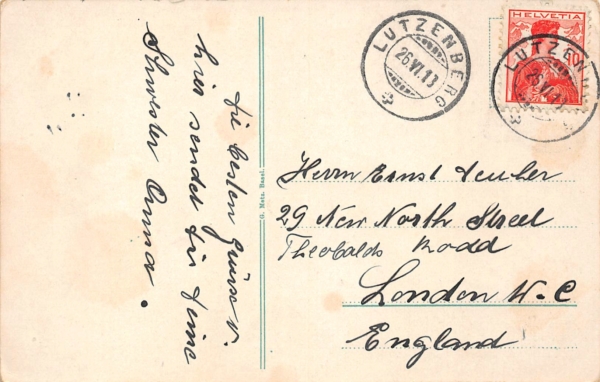 die besten Grüsse v.
hier sendet dir deine
Schwester Anna.
G. Metz, Basel.
LUTZENBERG
26.VI.13
HELVETIA
10
LUTZEN
26.VI.13
Herrn Ernst
29 New North Street
Theobalds Roadd
London W.C
England